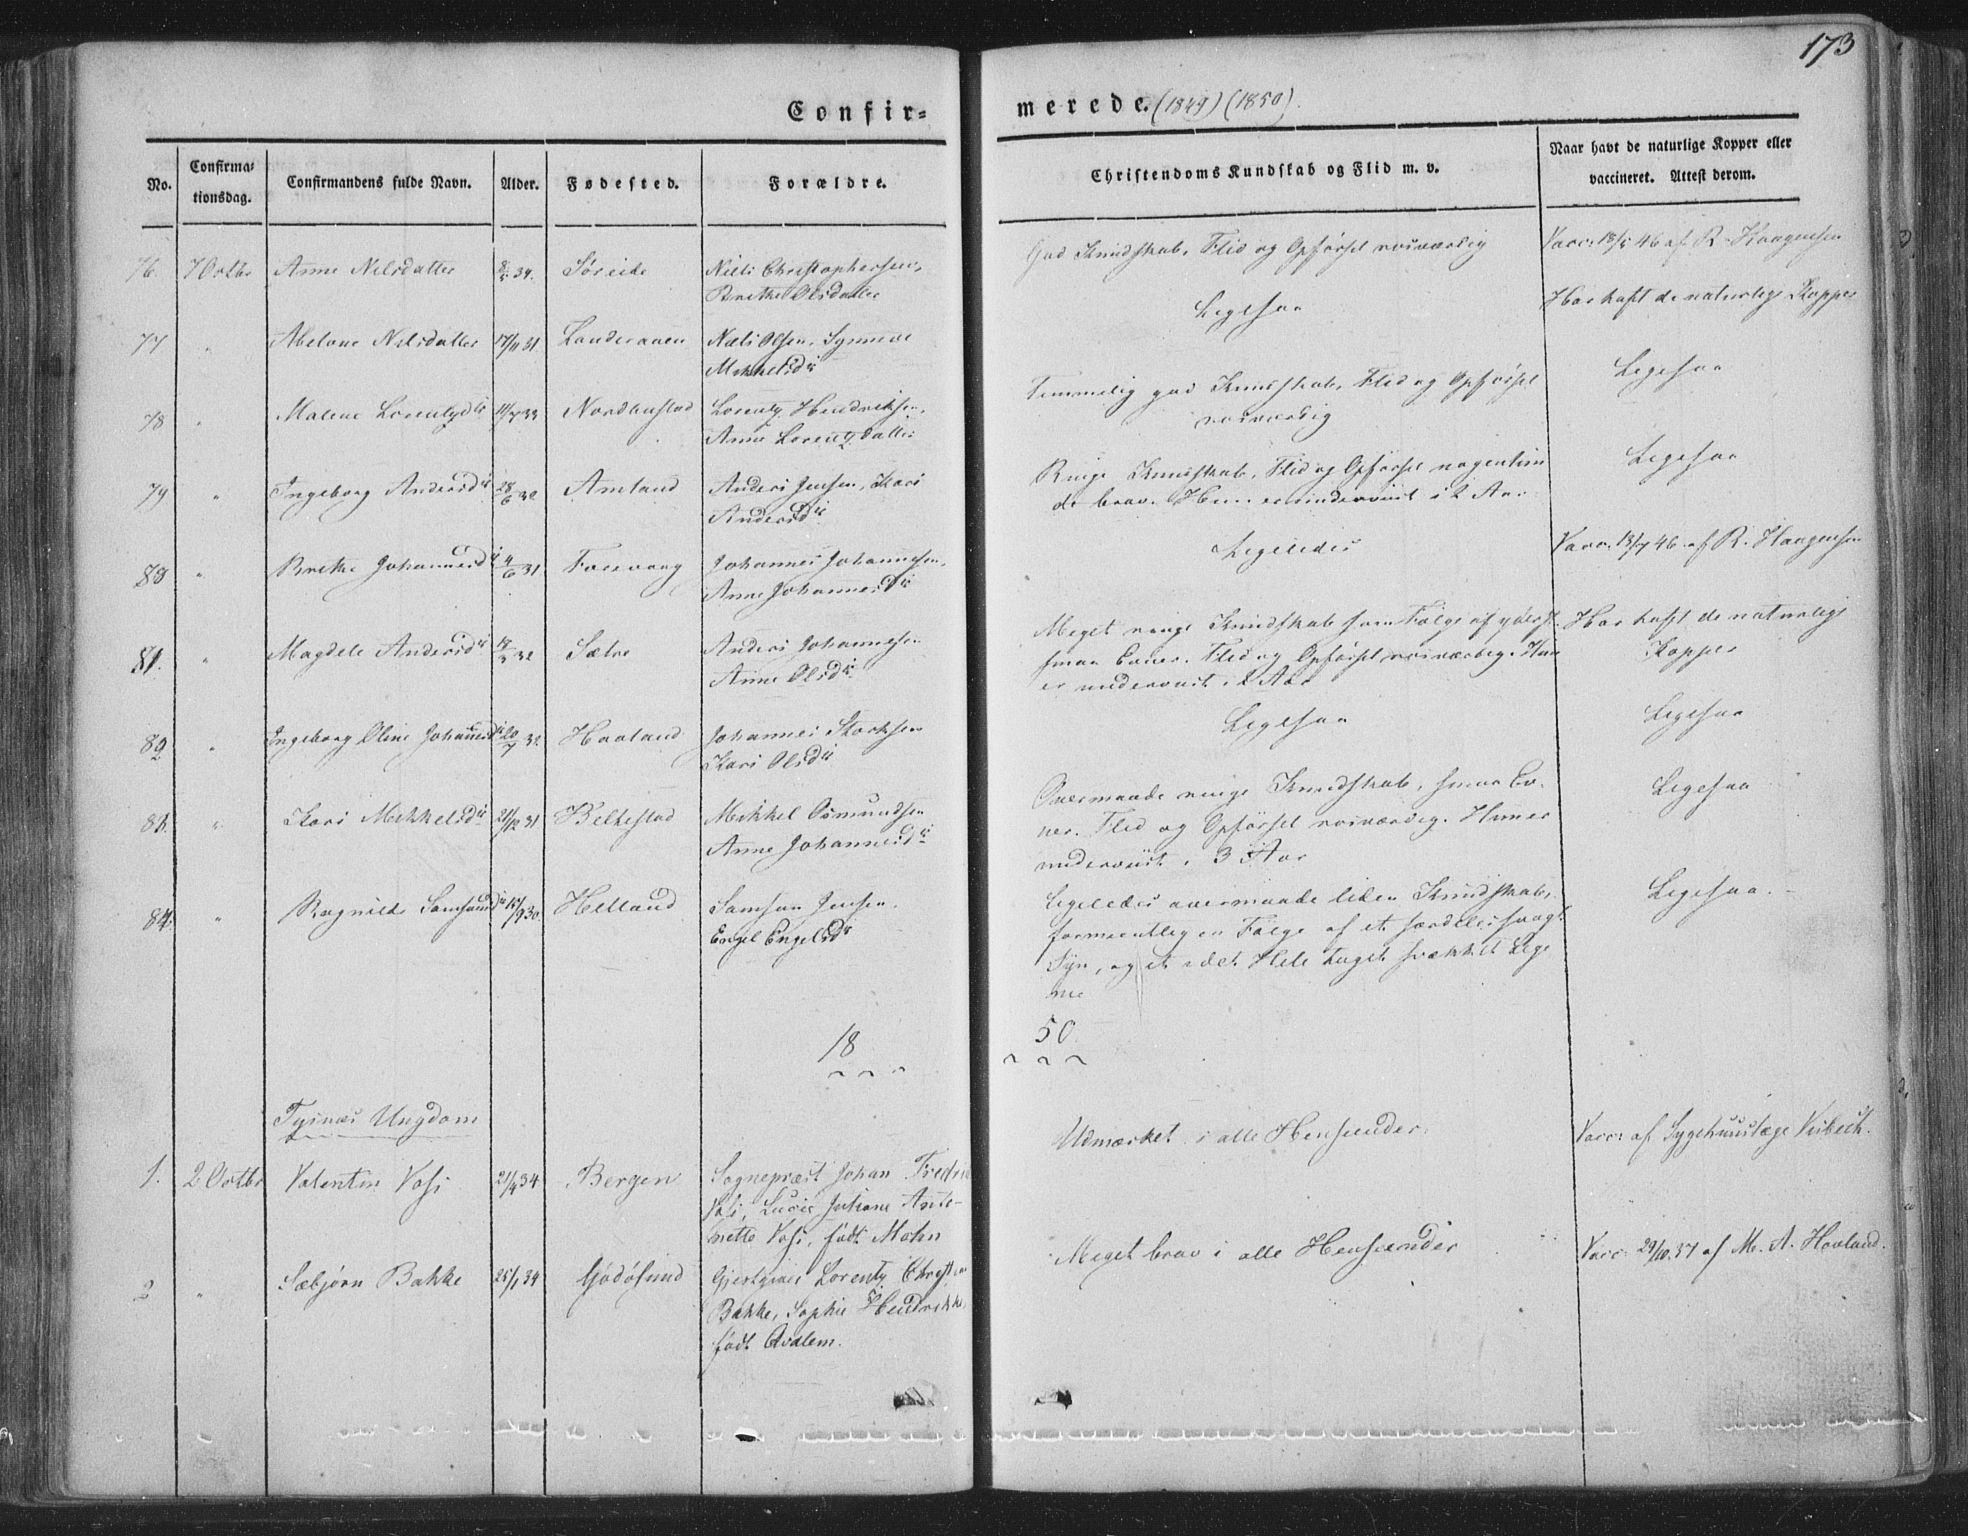 173
Confir=
merede. (1849) (1850)
No.
Confirma=
tionsdag.
Confirmandens fulde Navn.
Alder.
Fødested.
Forældre.
Christendoms Kundskab og Flid m. v.
Naar havt de naturlige Kopper eller
vaccineret. Attest derom.
76. 7 Octbr Anne Nilsdatter 34. Søreide Niels Christophersen,
Brithe Olsdatter
God Kundskab, Flid og Opførsel rosværdig
Vacc: 18/5 46 af R. Haagensen
77 " Abelone Nilsdatter 17/11 31 Landeraaen Niels Olsen, Synneve
Mikkelsdtr
Ligesaa
Har haft de naturlige Kopper
78 " Malene Lorentzdtr 11/7 33 Nordhustad Lorentz Hendriksen,
Anne Lorentzdatter
Temmelig god Kundskab, Flid og Opførsel
rosværdig
Ligesaa
79 " Ingeborg Andersdtr 28/6 32 Amland Anders Jensen, Kari
Andersdtr
Ringe Kundskab, Flid og Opførsel nogenlun
de brav. Hun er underviist i 2 Aar
Ligesaa
80 " Brithe Johannesdtr 4/6 31 Foesvaag Johannes Johannesen,
Anne Johannesdtr
Ligeledes
Vacc. 13/7 46 af R. Haagensen
81. " Magdele Andersdtr 32 Sætre Anders Johannesen
Anne Olsdtr
Meget ringe Kundskab som Følge af yderst
smaa Evner. Flid og Opførsel rosværdig. Hun
er underviist i 2 Aar
Har haft de naturlige
Kopper
82 " Ingeborg Oline Johannesdtr 20/7 32 Haaland Johannes Storksen
Kari Olsdtr
Ligesaa
Ligesaa
83. " Kari Mikkelsdtr 21/12 31 Belkestad Mikkel Osmundsen
Anne Johannesdtr
Overmaade ringe Kundskab, smaa Ev
ner. Flid og Opførsel rosværdig. Hun er
underviist i 3 Aar
Ligesaa
84. " Ragnilde Samsonsdtr 30. Helland Samson Jensen,
Engel Engelsdtr
Ligeledes overmaade liden Kundskab,
formeentlig en Følge af et særdeles svagt
Syn, og et i det Hele taget svækket Lege
me
Ligesaa.
18
50
Tysnæs Ungdom
1. 2 Octbr Valentin Voss 21/4 34 Bergen Sognepræst Johan Fredrik
Voss, Lucie Juliane Anto-
nette Voss, født Mohn
Udmærket i alle Henseender.
Vacc: af Sygehuuslæge Wibech.
2 " Sæbjørn Bakke 25/1 34 Godøsund Gjestgiver Lorentz Christian
Bakke, Sophie Hendrikke
født Qvalem.
Meget brav i alle Henseender
Vacc: 29/10. 37 af M. A. Hovland.